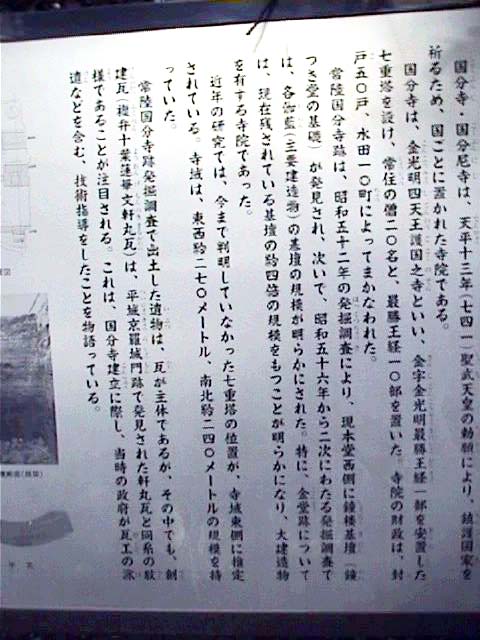 国分寺・国分尼寺は、天平十三年(七四一)聖武天皇の勅願により、鎮護国家を
祈るため、国ごとに置かれた寺院である。
国分寺は、金光明四天王護国之寺といい、金字金光明最勝王経一部を安置した
七重塔を設け、常住の僧二〇名と、最勝王経一〇部を置いた。寺院の財政は、封
戸五〇戸、水田一〇町によってまかなわれた。
常陸国分寺跡は、昭和五十二年の発掘調査により、現本堂西側に鐘楼基壇(鐘
つき堂の基礎)が発見され、次いで、昭和五十六年から二次にわたる発掘調査で
は、各伽藍(主要建造物)の基壇の規模が明らかにされた。特に、金堂跡について
は、現在残されている基壇の約四倍の規模をもつことが明らかになり、大建造物
を有する寺院であった。
近年の研究では、今まで判明していなかった七重塔の位置が、寺域東側に推定
されている。寺域は、東西約二七〇メートル、南北約二四〇メートルの規模を持
っていた。
常陸国分寺跡発掘調査で出土した遺物は、瓦が主体であるが、その中でも、創
建瓦(複弁十葉蓮華文軒丸瓦)は、平城京羅城門跡で発見された軒丸瓦と同系の紋
様であることが注目される。これは、国分寺建立に際し、当時の政府が瓦工の派
遣などを含む、技術指導をしたことを物語っている。